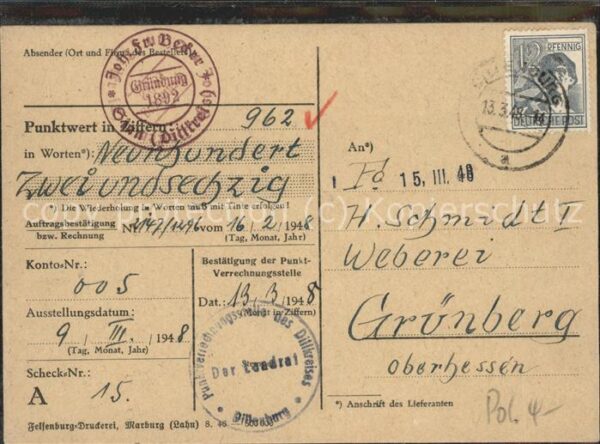 Absender (Ort und Firma des Bestellers)
Joh. Fr. Becker
Gründung
1892
(Dillkreis)
12 PFENNIG
DEUTSCHE POST
DILLENBURG
13.3.48
a
Punktwert in Ziffern: 962
in Worten*): Neunhundert
Zweiundsechzig
Die Wiederholung in Worten muß mit Tinte erfolgen!
Auftragsbestätigung
bzw. Rechnung
Nr. vom 16/2/1948
(Tag, Monat, Jahr)
Konto-Nr.:
005
Ausstellungsdatum:
9/III./1948
(Tag, Monat, Jahr)
Scheck-Nr.:
A 15.
Bestätigung der Punkt-
Verrechnungsstelle
Dat.: 13/3/1948
(Monat in Ziffern)
Punktverrechnungsstelle des Dillkreises
Der Landrat
Dillenburg
An*)
Fa
15. III. 48
H. Schmidt I
Weberei
Grünberg
oberhessen
*) Anschrift des Lieferanten
Felsenburg-Druckerei, Marburg (Lahn) 8. 46.
copyright (c) Kopierschutz